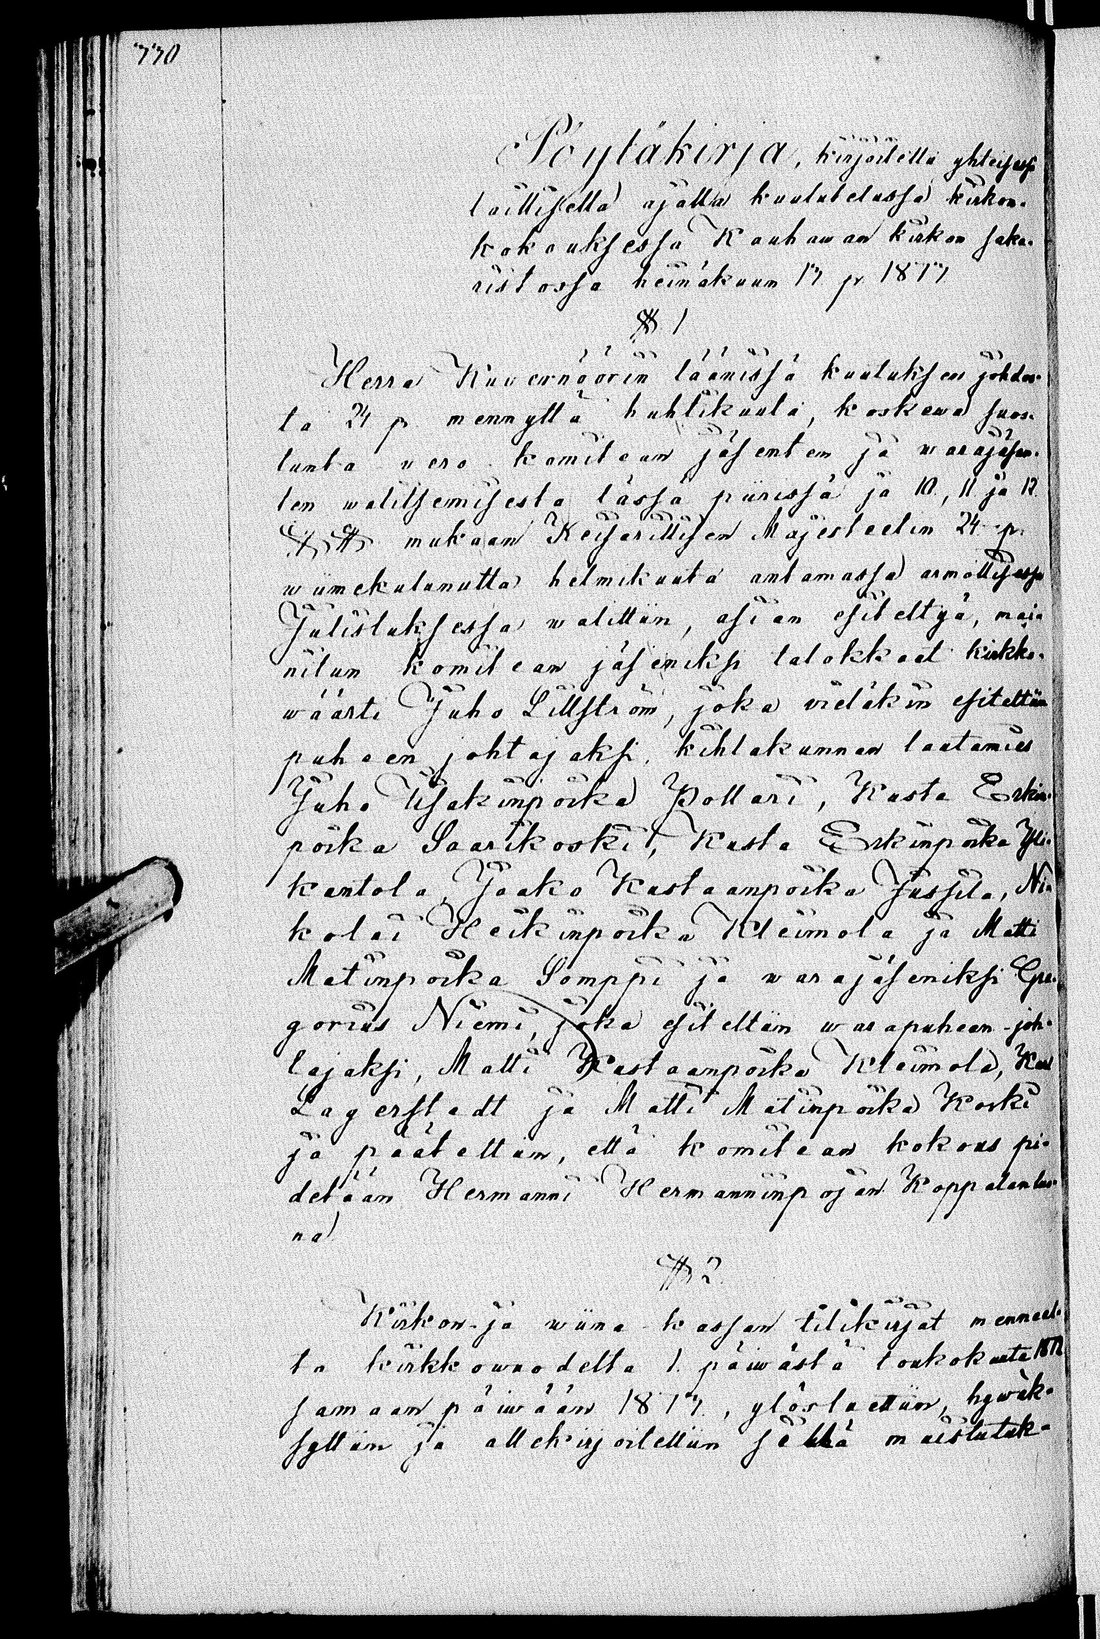 770
Pöytäkirja, kirjoitettu yhteisessä
laillisella ajalla kuulutetussa kirkon-
kokouksessa Kauhawan kirkon saka-
ristossa heinäkuun 17 p 1877
§ 1
Herra Kuvernöörin läänissä kuuluksen johdos-
ta 24 p mennyttä huhtikuuta, koskewa suos-
tunta vero komitean jäsenten ja warajäsen-
ten walitsemisesta tässä piirissä ja 10, 11 ja 12
§§ mukaan Keisarillisen Majesteetin 24 p.
wiimekulunutta helmikuuta antamassa armollisessa
Julistuksessa walittiin, asian esiteltyä, mai-
nitun komitean jäseniksi talokkaat kirkko-
wäärti Juho Lillström, joka vieläkin esiteltiin
puheenjohtajaksi, kihlakunnan lautamies
Juho Iisakinpoika Pollari, Kusta Erkin-
poika Saarikoski, Kusta Erkinpoika Yli-
kantola, Jaako Kustaanpoika Jussila, Ni-
kolai Heikinpoika Kleimola ja Matti
Matinpoika Somppi ja warajäseniksi Gre-
gorius Niemi, joka esiteltiin warapuheen-joh-
tajaksi, Matti Kustaanpoika Kleimola, Karl
Lagerstedt ja Matti Matinpoika Koski
ja päätettiin, että komitean kokous pi-
detään Hermanni Hermanninpojan Koppalan luo-
na
§ 2
Kirkon- ja wiina-kassan tilikirjat menneel-
tä kirkkowuodelta 1. päiwästä toukokuuta 1876
samaan päiwään 1877, ylösluettiin, hywäk-
syttiin ja allekirjoitettiin sillä muistutuk-